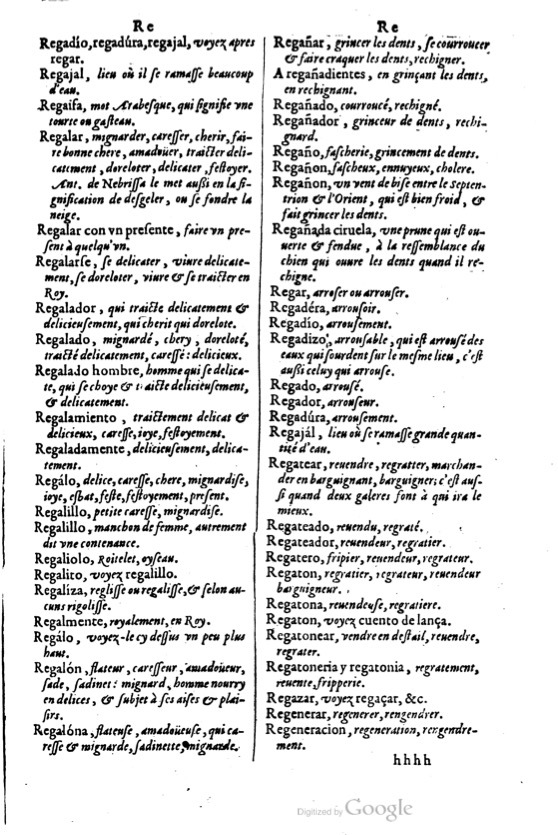 Re
Regadío, regadúra, regajal, voyez apres
regar.
Regajal, lieu où il se ramasse beaucoup
d'eau.
Regaifa, mot Arabesque, qui signifie vne
tourte ou gasteau.
Regalar, mignarder, caresser, cherir, fai-
re bonne chere, amadoüer, traicter deli-
catement, doreloter, delicater, festoyer.
Ant. de Nebrissa le met aussi en la si-
gnification de desgeler, ou se fondre la
neige.
Regalar con vn presente, faire vn pre-
sent à quelqu'vn.
Regalarse, se delicater, viure delicate-
ment, se doreloter, viure & se traicter en
Roy.
Regalador, qui traicte delicatement &
delicieusement, qui cherit qui dorelote.
Regalado, mignardé, chery, doreloté,
traicté delicatement, caressé: delicieux.
Regalado hombre, homme qui se delica-
te, qui se choye & traicte delicieusement,
& delicatement.
Regalamiento, traictement delicat &
delicieux, caresse, ioye, festoyement.
Regaladamente, delicieusement, delica-
tement.
Regálo, delice, caresse, chere, mignardise,
ioye, esbat, feste, festoyement, present.
Regalillo, petite caresse, mignardise.
Regalillo, manchon de femme, autrement
dit vne contenance.
Regaliolo, Roitelet, oyseau.
Regalito, voyez regalillo.
Regaliza, reglisse ou regalisse, & selon au-
cuns rigolisse.
Regalmente, royalement, en Roy.
Regálo, voyez-le cy dessus vn peu plus
haut.
Regalón, flateur, caresseur, amadoüeur,
sade, sadinet: mignard, homme nourry
en delices, & subjet à ses aises & plai-
sirs.
Regalóna, flateuse, amadoüeuse, qui ca-
resse & mignarde, sadinette, mignarde.
Re
Regañar, grincer les dents, se courroucer
& faire craquer les dents, rechigner.
A regañadientes, en grinçant les dents,
en rechignant.
Regañado, courroucé, rechigné.
Regañador, grinceur de dents, rechi-
gnard.
Regaño, fascherie, grincement de dents.
Regañon, fascheux, ennuyeux, cholere.
Regañon, vn vent de bise entre le Septen-
trion & l'Orient, qui est bien froid, &
fait grincer les dents.
Regañada ciruela, vne prune qui est ou-
uerte & fendue, à la ressemblance du
chien qui ouure les dents quand il re-
chigne.
Regar, arroser ou arrouser.
Regadéra, arrousoir.
Regadío, arrousement.
Regadizo, arrousable, qui est arrousé des
eaux qui sourdent sur le mesme lieu, c'est
aussi celuy qui arrouse.
Regado, arrousé.
Regador, arrouseur.
Regadúra, arrousement.
Regajál, lieu où se ramasse grande quan-
tité d'eau.
Regatear, reuendre, regratter, marchan-
der en barguignant, barguigner: c'est aus-
si quand deux galeres font à qui ira le
mieux.
Regateado, reuendu, regraté.
Regateador, reuendeur, regratier.
Regatero, fripier, reuendeur, regrateur.
Regaton, regratier, regrateur, reuendeur
barguigneur.
Regatona, reuendeuse, regratiere.
Regaton, voyez cuento de lança.
Regatonear, vendre en destail, reuendre,
regrater.
Regatoneria y regatonia, regratement,
reuente, fripperie.
Regazar, voyez regaçar, &c.
Regenerar, regenerer, rengendrer.
Regeneracion, regeneration, rengendre-
ment.
hhhh
Digitized by Google